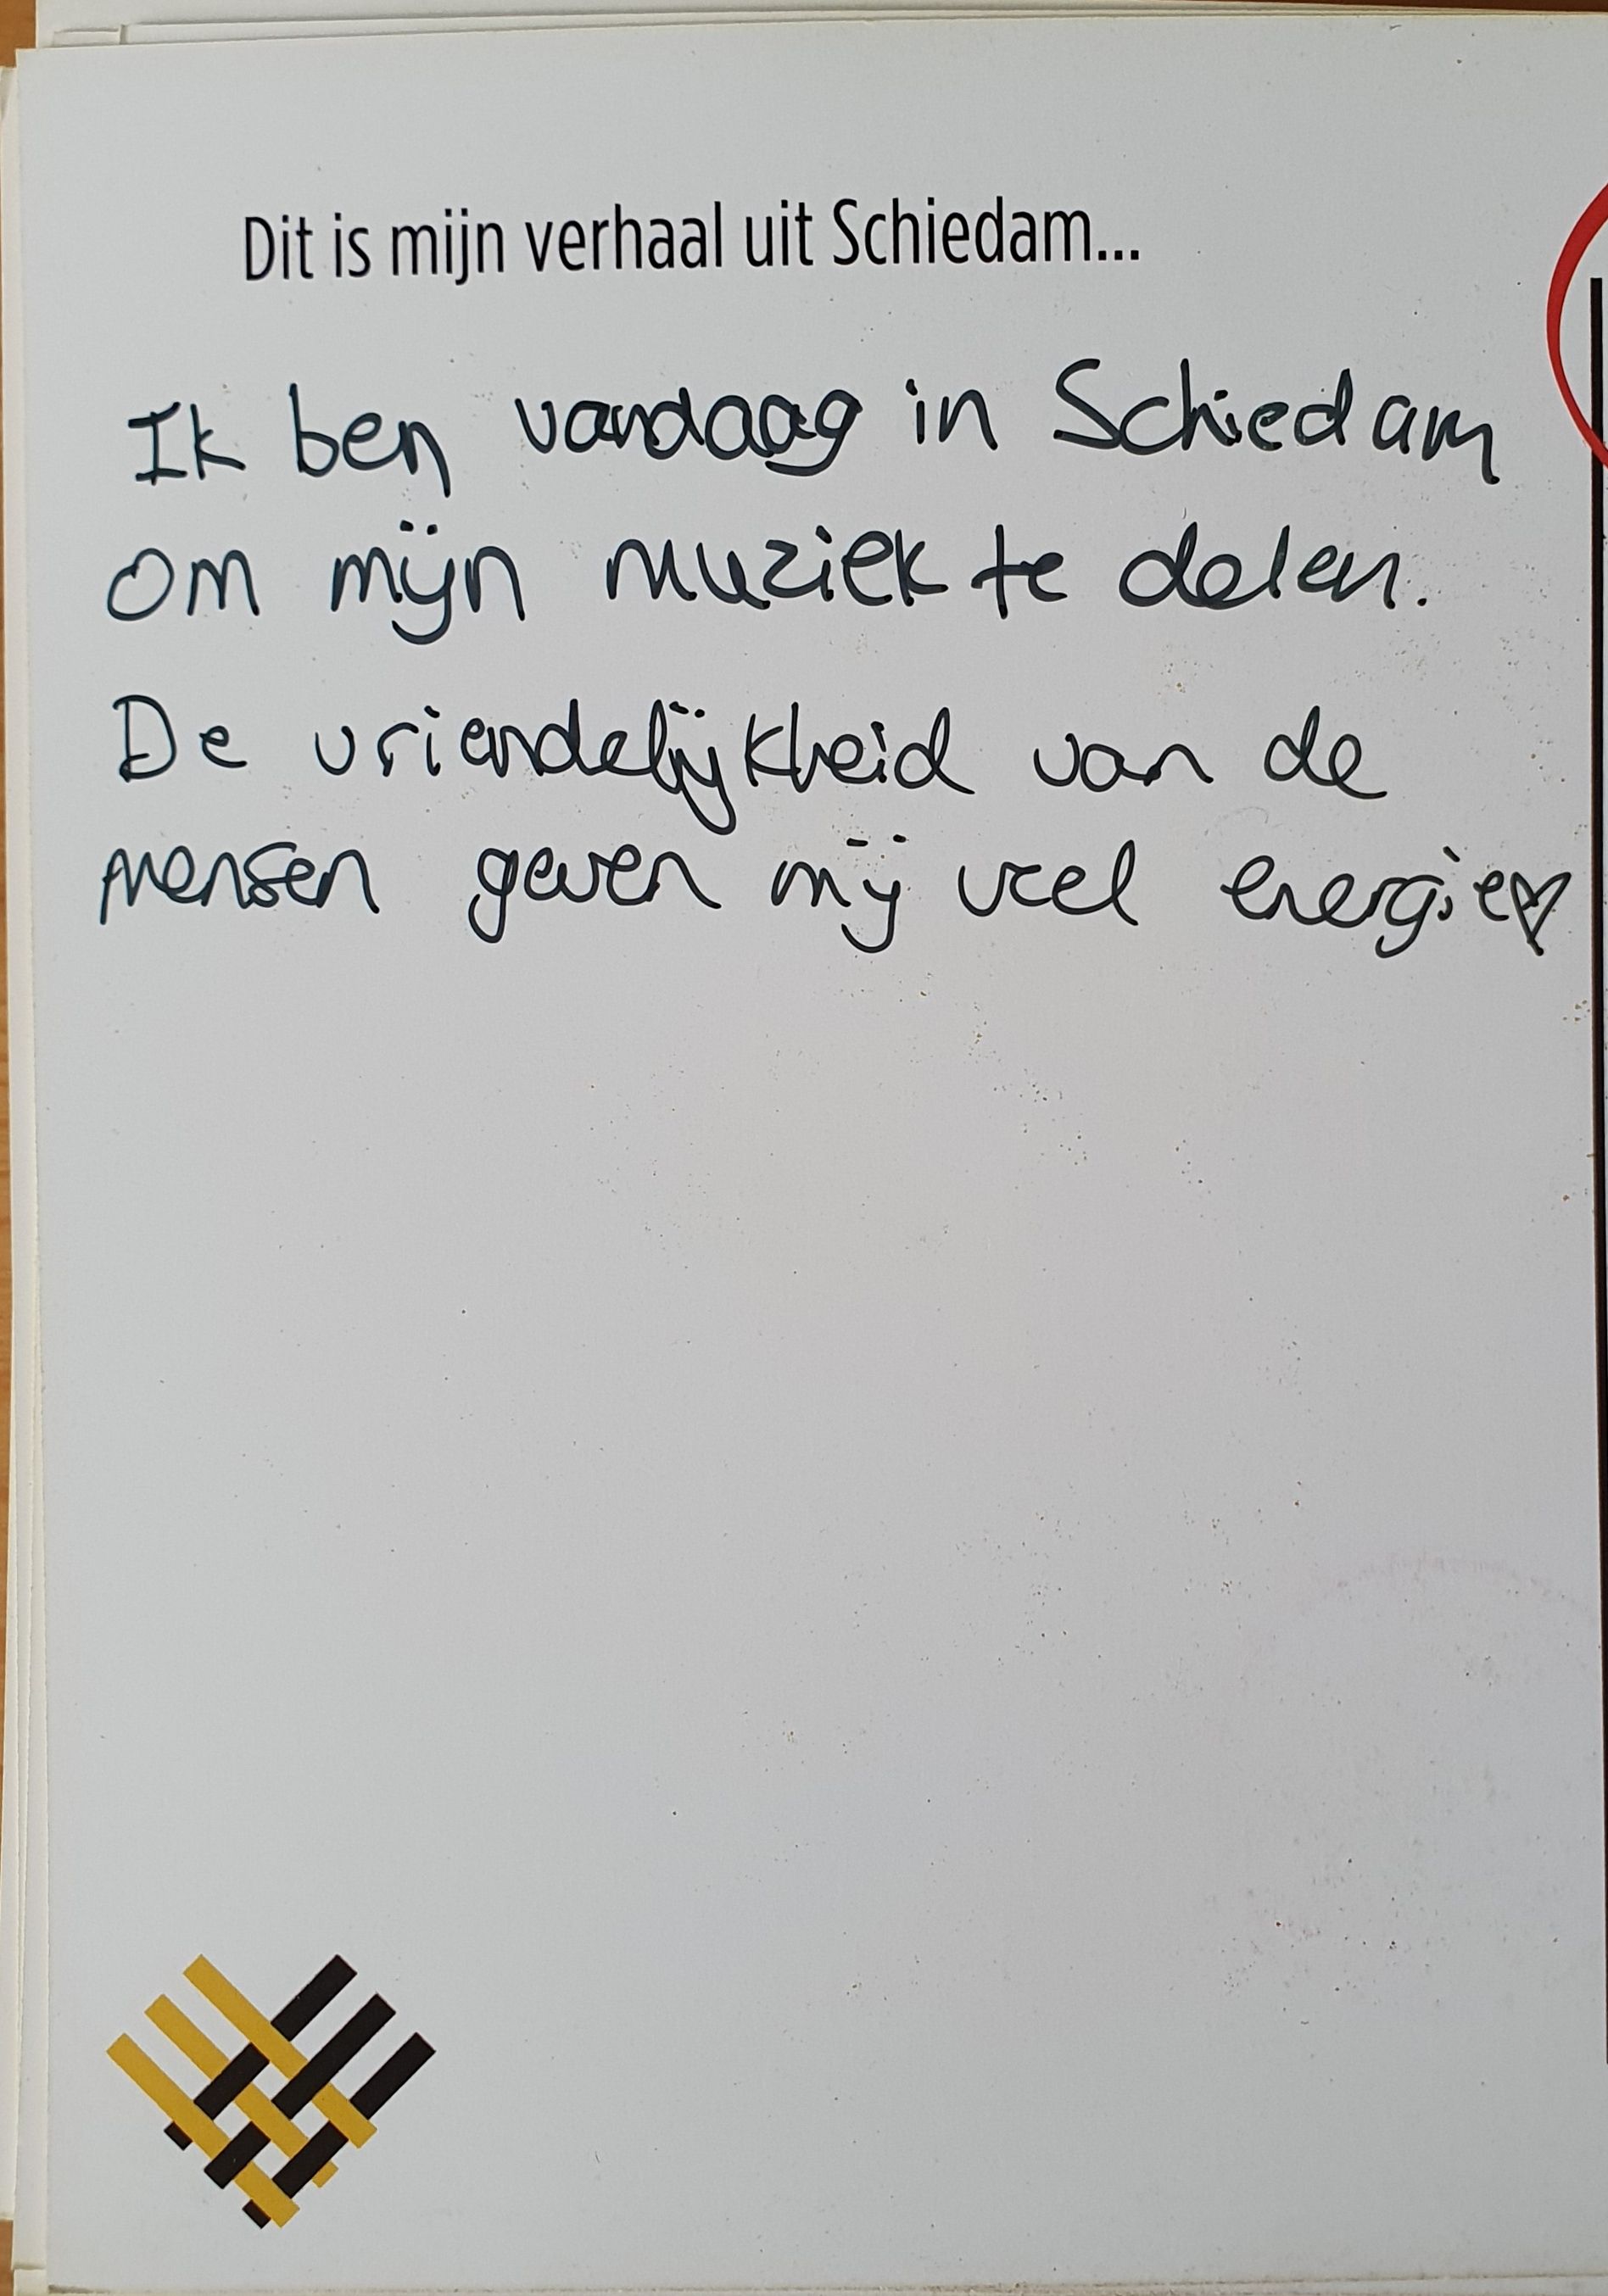 Dit is mijn verhaal uit Schiedam...
Ik ben vandaag in Schiedam
om mijn muziek te delen.
De vriendelijkheid van de
mensen geven mij veel energie♡